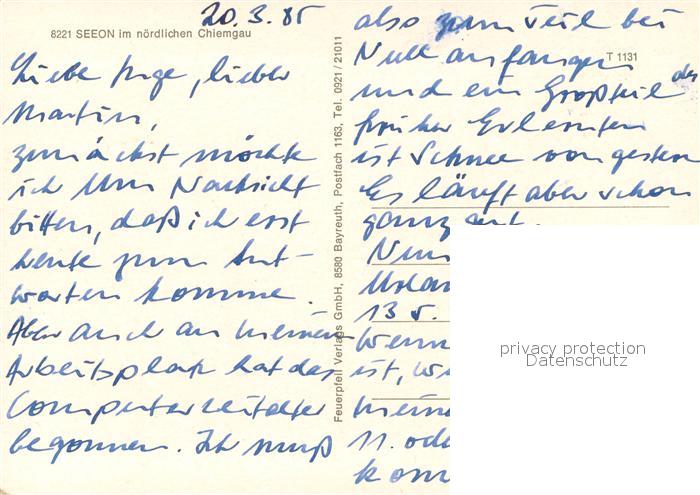 20.3.85
8221 SEEON im nördlichen Chiemgau
Liebe Inge, lieber
Martin,
zunächst möchte
ich um Nachsicht
bitten, daß ich erst
heute zum Ant-
worten komme.
Aber auch an meinem
Arbeitsplatz hat das
Computerzeitalter
begonnen. Ich muß
Feuerpfeil Verlags GmbH, 8580 Bayreuth, Postfach 1163, Tel. 0921 / 21011
T 1131
also zum Teil bei
Null anfangen
und ein Großteil des
früher Erlernten
ist Schnee von gestern
Es läuft aber schon
ganz gut.
Nun
Urlau
13 5.
Wenn
ist, w
meine
11. ode
kom
privacy protection
Datenschutz